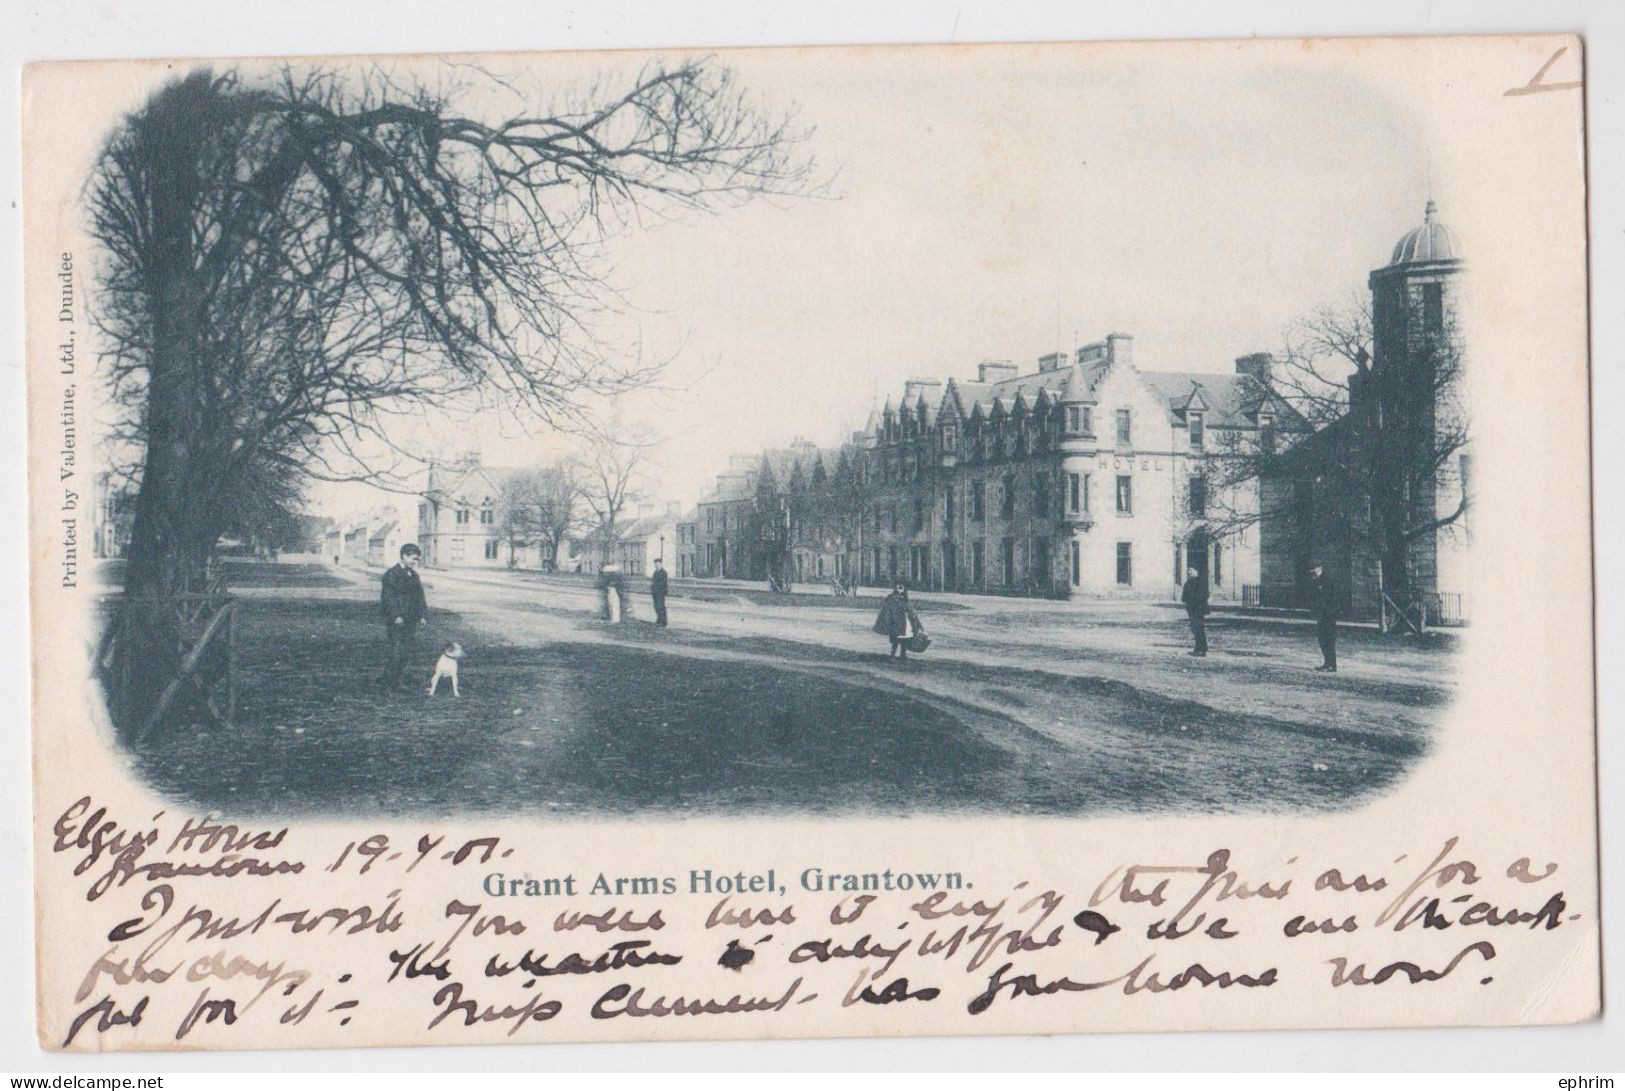 Printed by Valentine, Ltd., Dundee
HOTEL
Elgin House
Grantown 19.7.01.
Grant Arms Hotel, Grantown.
I just wish you were here to enjoy the fine air for a
few days. The weather is delightful & we are thank-
ful for it. Miss Clement has gone home now.
ephrim
delcampe.net